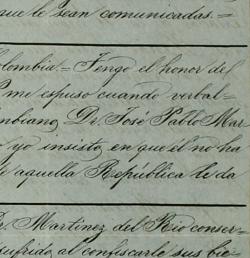 que le sean comunicadas.=
olombia.= Tengo el honor del
me espuso cuando verbal-
mbiano, Dr. José Pablo Mar
yo insisto, en que el no ha
e aquella República le da
Dr. Martinez del Rio conser-
sufrido al confiscarle sus bie-